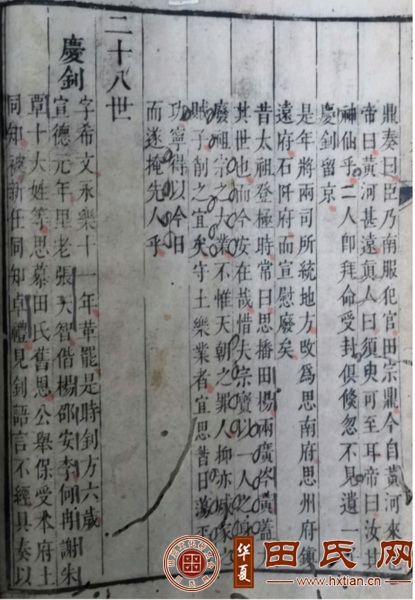 鼎奏曰臣乃南服犯官田宗鼎今自黃河來
帝曰黃河甚遠眞人曰須臾可至耳帝曰汝其
神仙乎二人卽拜命受封俱倏忽不見遺一
慶釗留京
是年將兩司所統地方改爲思南府思州府
遠府石阡府而宣慰廢矣
昔太祖登極時嘗曰思播田楊兩廣岑黃蓋
其世也而今安在哉惜夫宗寶以一人之
廢祖宗之大業不惟天朝之罪人抑亦
賊子削之宜矣守土樂業者宜思昔日
功寧得以今日
而遂掩先人乎
二十八世
慶釗
字希文永樂十一年革罷是時釗方六歲
宣德元年里老張大智偕楊邵安李何冉謝朱
覃十大姓等思慕田氏舊恩公舉保受本府土
同知被新任同知卓禮見釗語言不經具奏以
田氏网
华夏
www.hxtian.cn